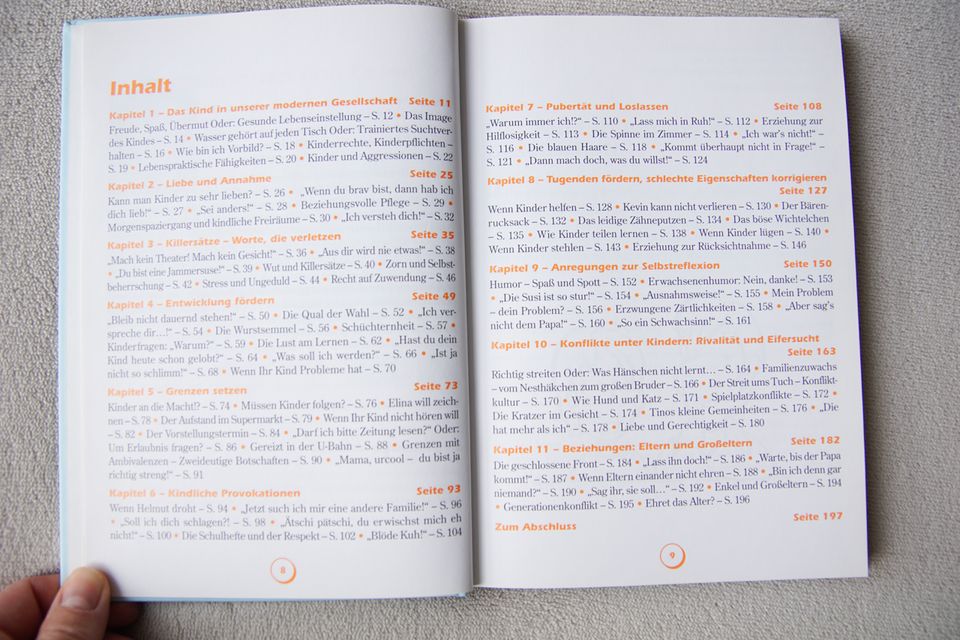 Inhalt
Kapitel 1 – Das Kind in unserer modernen Gesellschaft Seite 11
Freude, Spaß, Übermut Oder: Gesunde Lebenseinstellung – S. 12 • Das Image
des Kindes – S. 14 • Wasser gehört auf jeden Tisch Oder: Trainiertes Suchtver-
halten – S. 16 • Wie bin ich Vorbild? – S. 18 • Kinderrechte, Kinderpflichten –
S. 19 • Lebenspraktische Fähigkeiten – S. 20 • Kinder und Aggressionen – S. 22
Kapitel 2 – Liebe und Annahme Seite 25
Kann man Kinder zu sehr lieben? – S. 26 • „Wenn du brav bist, dann hab ich
dich lieb!“ – S. 27 • „Sei anders!“ – S. 28 • Beziehungsvolle Pflege – S. 29 •
Morgenspaziergang und kindliche Freiräume – S. 30 • „Ich versteh dich!“ – S. 32
Kapitel 3 – Killersätze – Worte, die verletzen Seite 35
„Mach kein Theater! Mach kein Gesicht!“ – S. 36 • „Aus dir wird nie etwas!“ – S. 38
• „Du bist eine Jammersuse!“ – S. 39 • Wut und Killersätze – S. 40 • Zorn und Selbst-
beherrschung – S. 42 • Stress und Ungeduld – S. 44 • Recht auf Zuwendung – S. 46
Kapitel 4 – Entwicklung fördern Seite 49
„Bleib nicht dauernd stehen!“ – S. 50 • Die Qual der Wahl – S. 52 • „Ich ver-
spreche dir…!“ – S. 54 • Die Wurstsemmel – S. 56 • Schüchternheit – S. 57 •
Kinderfragen: „Warum?“ – S. 59 • Die Lust am Lernen – S. 62 • „Hast du dein
Kind heute schon gelobt?“ – S. 64 • „Was soll ich werden?“ – S. 66 • „Ist ja
nicht so schlimm!“ – S. 68 • Wenn Ihr Kind Probleme hat – S. 70
Kapitel 5 – Grenzen setzen Seite 73
Kinder an die Macht!? – S. 74 • Müssen Kinder folgen? – S. 76 • Elina will zeich-
nen – S. 78 • Der Aufstand im Supermarkt – S. 79 • Wenn Ihr Kind nicht hören will
– S. 82 • Der Vorstellungstermin – S. 84 • „Darf ich bitte Zeitung lesen?“ Oder:
Um Erlaubnis fragen? – S. 86 • Gereizt in der U-Bahn – S. 88 • Grenzen mit
Ambivalenzen – Zweideutige Botschaften – S. 90 • „Mama, urcool – du bist ja
richtig streng!“ – S. 91
Kapitel 6 – Kindliche Provokationen Seite 93
Wenn Helmut droht – S. 94 • „Jetzt such ich mir eine andere Familie!“ – S. 96
• „Soll ich dich schlagen?! – S. 98 • „Ätschi pätschi, du erwischst mich eh
nicht!“ – S. 100 • Die Schulhefte und der Respekt – S. 102 • „Blöde Kuh!“ – S. 104
8
Kapitel 7 – Pubertät und Loslassen Seite 108
„Warum immer ich!?“ – S. 110 • „Lass mich in Ruh!“ – S. 112 • Erziehung zur
Hilflosigkeit – S. 113 • Die Spinne im Zimmer – S. 114 • „Ich war's nicht!“ –
S. 116 • Die blauen Haare – S. 118 • „Kommt überhaupt nicht in Frage!“ –
S. 121 • „Dann mach doch, was du willst!“ – S. 124
Kapitel 8 – Tugenden fördern, schlechte Eigenschaften korrigieren
Seite 127
Wenn Kinder helfen – S. 128 • Kevin kann nicht verlieren – S. 130 • Der Bären-
rucksack – S. 132 • Das leidige Zähneputzen – S. 134 • Das böse Wichtelchen
– S. 135 • Wie Kinder teilen lernen – S. 138 • Wenn Kinder lügen – S. 140 •
Wenn Kinder stehlen – S. 143 • Erziehung zur Rücksichtnahme – S. 146
Kapitel 9 – Anregungen zur Selbstreflexion Seite 150
Humor – Spaß und Spott – S. 152 • Erwachsenenhumor: Nein, danke! – S. 153
• „Die Susi ist so stur!“ – S. 154 • „Ausnahmsweise!“ – S. 155 • Mein Problem
– dein Problem? – S. 156 • Erzwungene Zärtlichkeiten – S. 158 • „Aber sag's
nicht dem Papa!“ – S. 160 • „So ein Schwachsinn!“ – S. 161
Kapitel 10 – Konflikte unter Kindern: Rivalität und Eifersucht
Seite 163
Richtig streiten Oder: Was Hänschen nicht lernt… – S. 164 • Familienzuwachs
– vom Nesthäkchen zum großen Bruder – S. 166 • Der Streit ums Tuch – Konflikt-
kultur – S. 170 • Wie Hund und Katz – S. 171 • Spielplatzkonflikte – S. 172 •
Die Kratzer im Gesicht – S. 174 • Tinos kleine Gemeinheiten – S. 176 • „Die
hat mehr als ich“ – S. 178 • Liebe und Gerechtigkeit – S. 180
Kapitel 11 – Beziehungen: Eltern und Großeltern Seite 182
Die geschlossene Front – S. 184 • „Lass ihn doch!“ – S. 186 • „Warte, bis der Papa
kommt!“ – S. 187 • Wenn Eltern einander nicht ehren – S. 188 • „Bin ich denn gar
niemand?“ – S. 190 • „Sag ihr, sie soll…“ – S. 192 • Enkel und Großeltern – S. 194
• Generationenkonflikt – S. 195 • Ehret das Alter? – S. 196
Zum Abschluss Seite 197
9